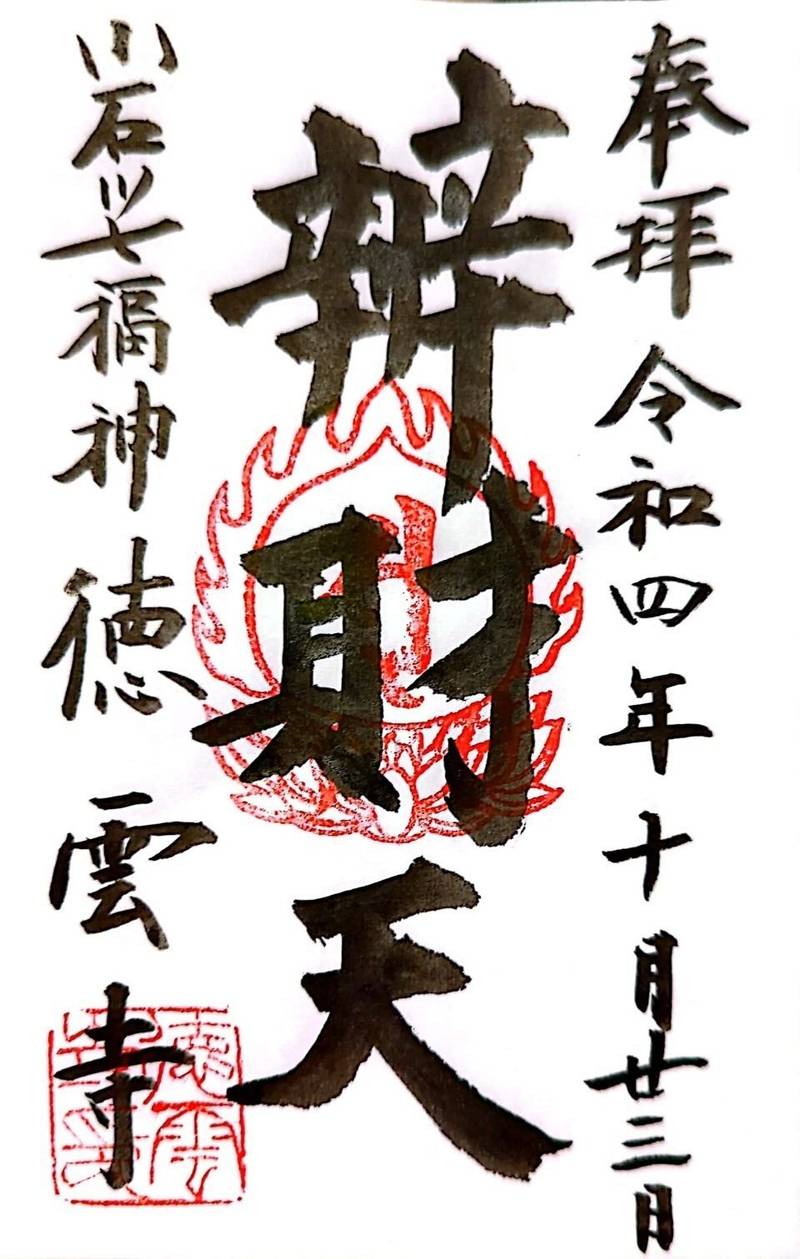 奉拝 令和四年十月廿三日
辨財天
小石川七福神 徳雲寺